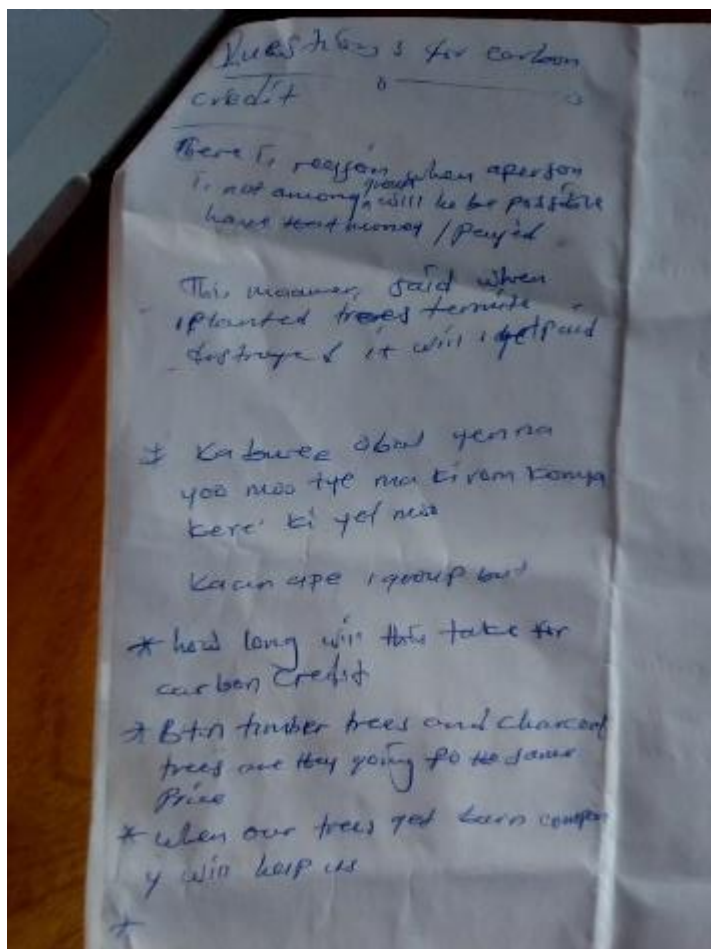 Questions for carbon
credit
there is reason when aperson
is not among group will he be possible
have money / payed
This manner, said when
i planted trees termite
destroyed it will i get paid
yoo moo tye ma
kere ki yel moo
Kacin ape i group but
* how long will this take for
carbon credit
* Btn timber trees and charcoal
trees are they going to the same
Price
* when our trees get burn compan
y will help us
*